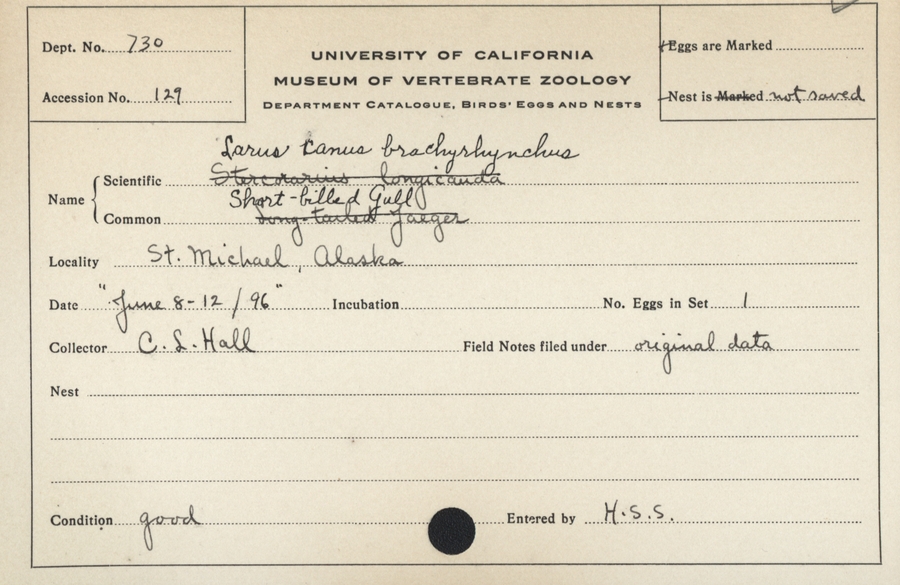 Dept. No. 730
Accession No. 129
UNIVERSITY OF CALIFORNIA
MUSEUM OF VERTEBRATE ZOOLOGY
DEPARTMENT CATALOGUE, BIRDS' EGGS AND NESTS
Eggs are Marked
Nest is Marked not saved
Larus canus brachyrhynchus
Name { Scientific Stercorarius longicauda
Short-billed Gull
Common Long-tailed Jaeger
Locality St. Michael, Alaska
Date "June 8-12/96" Incubation No. Eggs in Set 1
Collector C. L. Hall Field Notes filed under original data
Nest
Condition good Entered by H.S.S.